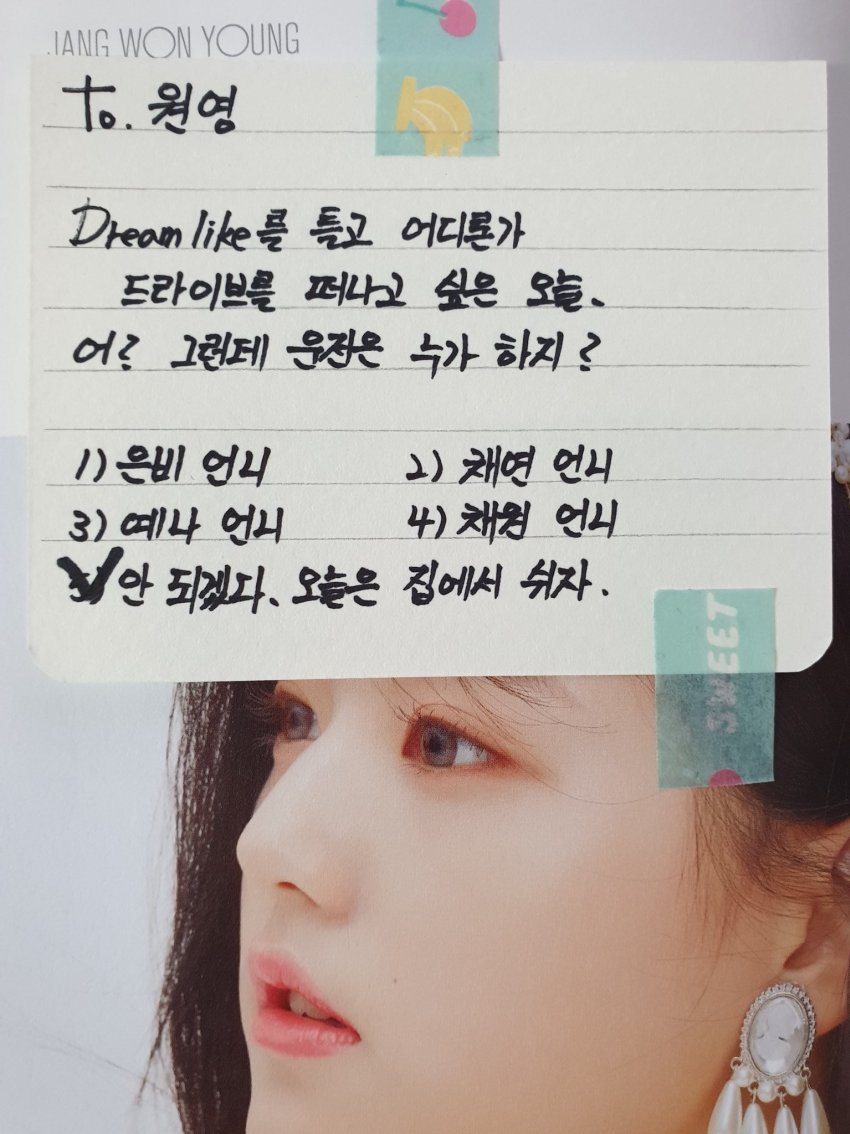 JANG WON YOUNG
To. 원영
Dreamlike를 틀고 어디론가
드라이브를 떠나고 싶은 오늘.
어? 그런데 운전은 누가 하지?
1) 은비 언니 2) 채연 언니
3) 예나 언니 4) 채원 언니
5) 안 되겠다. 오늘은 집에서 쉬자.
SWEET